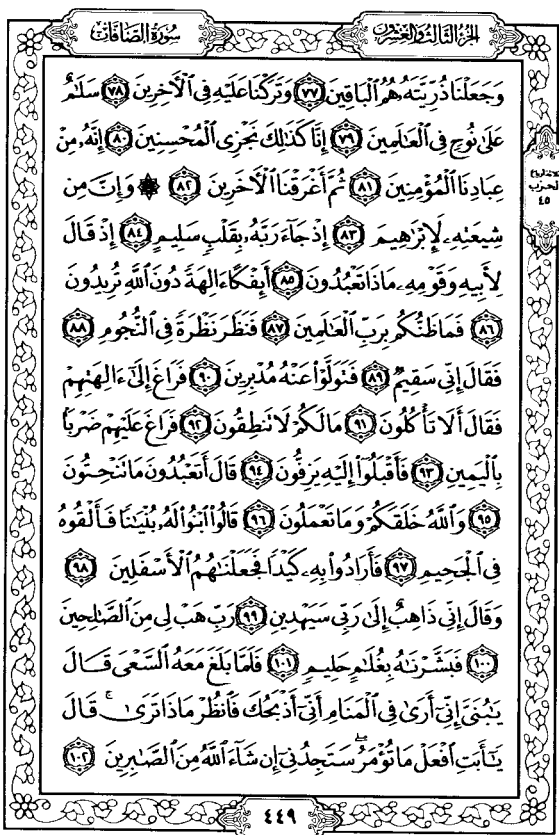 سُورَةُ الصَّافَّاتِ
الجُزْءُ الثَّالِثُ وَالعِشْرُونَ
وَجَعَلْنَا ذُرِّيَّتَهُۥ هُمُ ٱلْبَاقِينَ ٧٧ وَتَرَكْنَا عَلَيْهِ فِى ٱلْأَخِرِينَ ٧٨ سَلَٰمٌ
عَلَىٰ نُوحٍ فِى ٱلْعَٰلَمِينَ ٧٩ إِنَّا كَذَٰلِكَ نَجْزِى ٱلْمُحْسِنِينَ ٨٠ إِنَّهُۥ مِنْ
عِبَادِنَا ٱلْمُؤْمِنِينَ ٨١ ثُمَّ أَغْرَقْنَا ٱلْأَخَرِينَ ٨٢ ۞ وَإِنَّ مِن
شِيعَتِهِۦ لَإِبْرَٰهِيمَ ٨٣ إِذْ جَآءَ رَبَّهُۥ بِقَلْبٍ سَلِيمٍ ٨٤ إِذْ قَالَ
لِأَبِيهِ وَقَوْمِهِۦ مَاذَا تَعْبُدُونَ ٨٥ أَئِفْكًا ءَالِهَةً دُونَ ٱللَّهِ تُرِيدُونَ
٨٦ فَمَا ظَنُّكُم بِرَبِّ ٱلْعَٰلَمِينَ ٨٧ فَنَظَرَ نَظْرَةً فِى ٱلنُّجُومِ ٨٨
فَقَالَ إِنِّى سَقِيمٌ ٨٩ فَتَوَلَّوْا۟ عَنْهُ مُدْبِرِينَ ٩٠ فَرَاغَ إِلَىٰٓ ءَالِهَتِهِمْ
فَقَالَ أَلَا تَأْكُلُونَ ٩١ مَا لَكُمْ لَا تَنطِقُونَ ٩٢ فَرَاغَ عَلَيْهِمْ ضَرْبًۢا
بِٱلْيَمِينِ ٩٣ فَأَقْبَلُوٓا۟ إِلَيْهِ يَزِفُّونَ ٩٤ قَالَ أَتَعْبُدُونَ مَا تَنْحِتُونَ
٩٥ وَٱللَّهُ خَلَقَكُمْ وَمَا تَعْمَلُونَ ٩٦ قَالُوا۟ ٱبْنُوا۟ لَهُۥ بُنْيَٰنًا فَأَلْقُوهُ
فِى ٱلْجَحِيمِ ٩٧ فَأَرَادُوا۟ بِهِۦ كَيْدًا فَجَعَلْنَٰهُمُ ٱلْأَسْفَلِينَ ٩٨
وَقَالَ إِنِّى ذَاهِبٌ إِلَىٰ رَبِّى سَيَهْدِينِ ٩٩ رَبِّ هَبْ لِى مِنَ ٱلصَّٰلِحِينَ
١٠٠ فَبَشَّرْنَٰهُ بِغُلَٰمٍ حَلِيمٍ ١٠١ فَلَمَّا بَلَغَ مَعَهُ ٱلسَّعْىَ قَالَ
يَٰبُنَىَّ إِنِّىٓ أَرَىٰ فِى ٱلْمَنَامِ أَنِّىٓ أَذْبَحُكَ فَٱنظُرْ مَاذَا تَرَىٰ ۚ قَالَ
يَٰٓأَبَتِ ٱفْعَلْ مَا تُؤْمَرُ ۖ سَتَجِدُنِىٓ إِن شَآءَ ٱللَّهُ مِنَ ٱلصَّٰبِرِينَ ١٠٢
الحزب
٤٥
٤٤٩